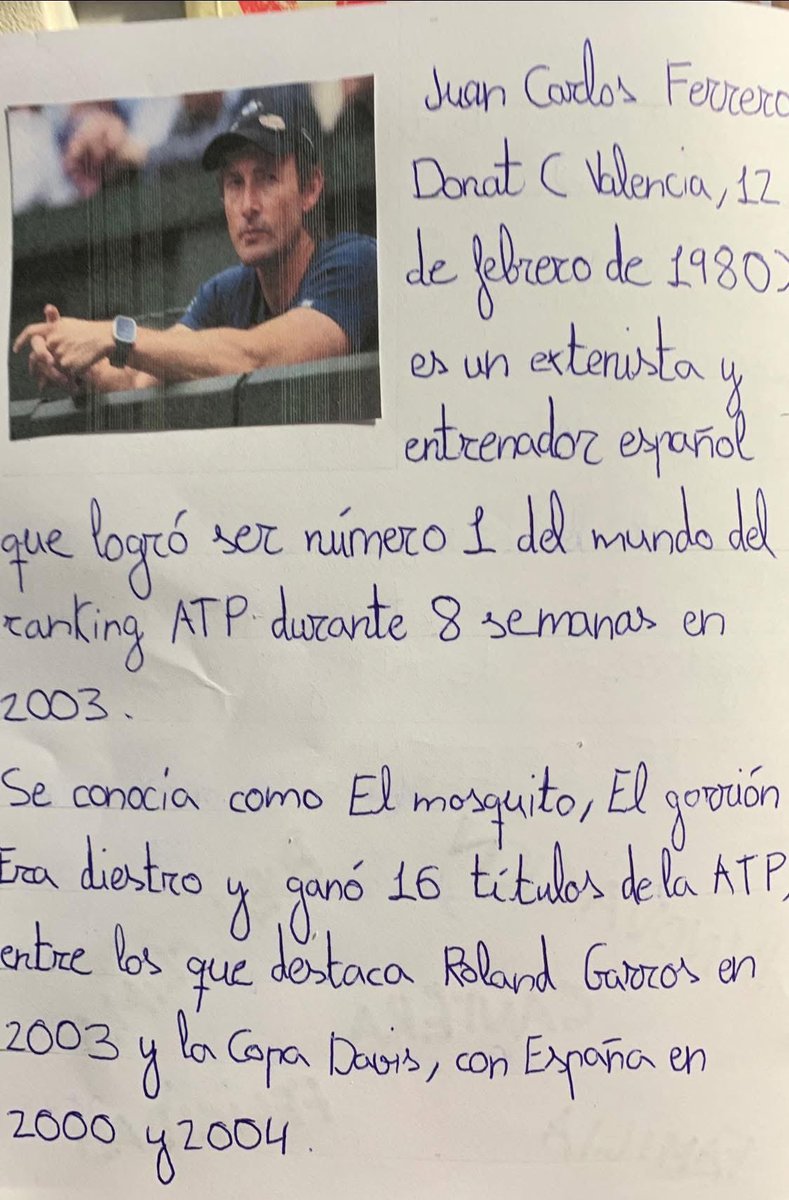 Juan Carlos Ferrero
Donat ( Valencia, 12
de febrero de 1980)
es un extenista y
entrenador español
que logró ser número 1 del mundo del
ranking ATP durante 8 semanas en
2003.
Se conocía como El mosquito, El gorrión
Era diestro y ganó 16 títulos de la ATP,
entre los que destaca Roland Garros en
2003 y la Copa Davis, con España en
2000 y 2004.